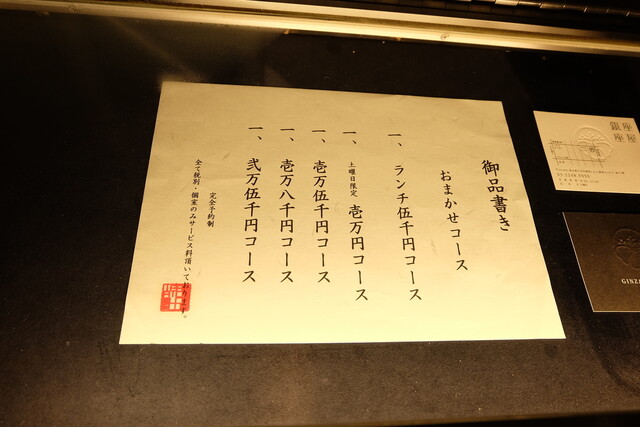 御品書き
おまかせコース
一、ランチ伍千円コース
一、土曜日限定 壱万円コース
一、壱万伍千円コース
一、壱万八千円コース
一、弐万伍千円コース
完全予約制
全て税別・個室のみサービス料頂いております。
GINZA